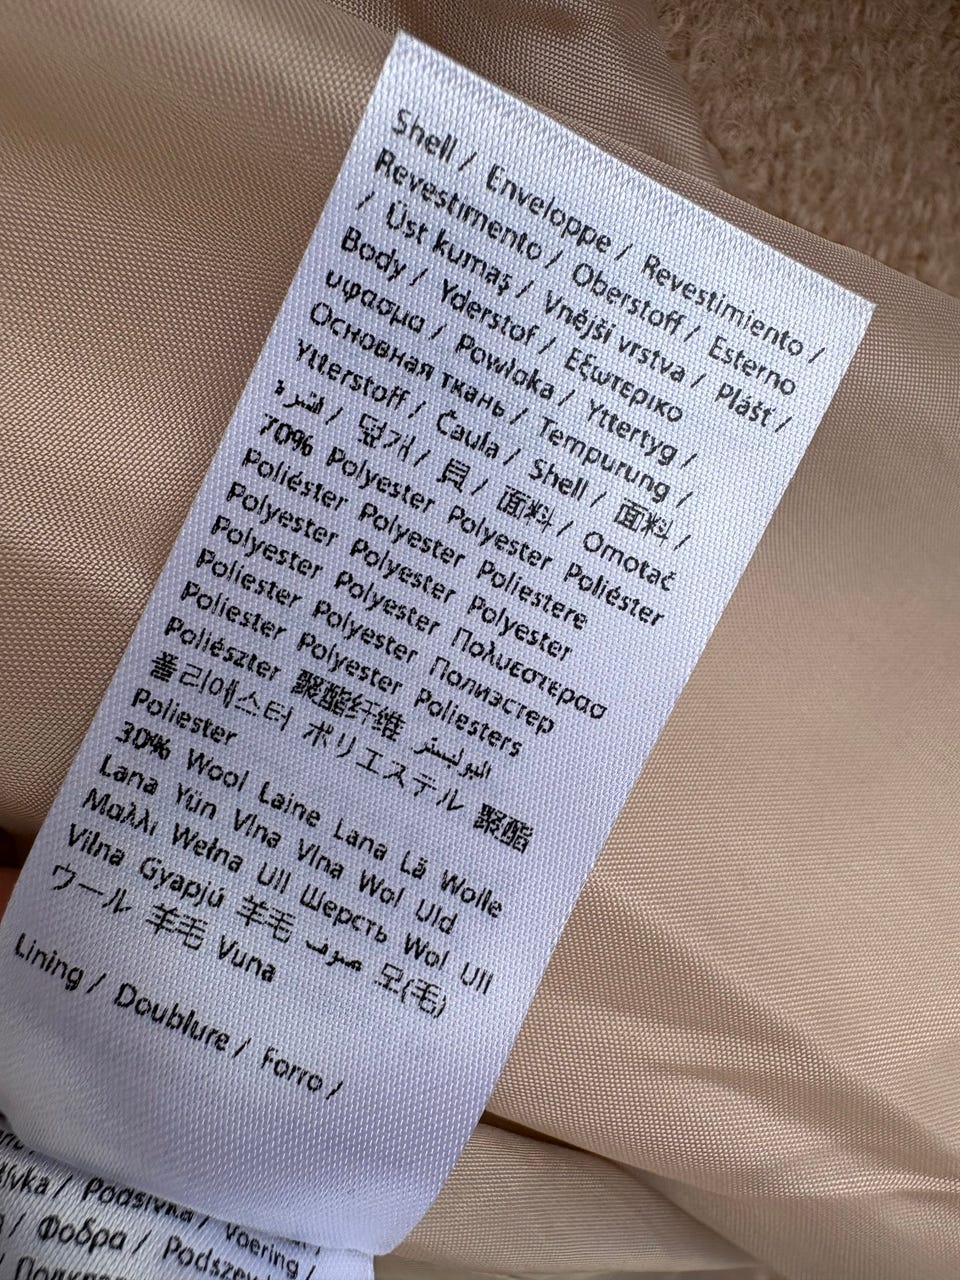 Shell / Enveloppe / Revestimiento /
Revestimento / Oberstoff / Esterno
/ Üst kumaş / Vnější vrstva / Plášť /
Body / Yderstof / Εξωτερικο
υφασμα / Powłoka / Yttertyg /
Основная ткань / Tempurung /
Ytterstoff / Čaula / Shell / 面料 /
قشرة / 덮개 / 貝 / 面料 / Omotač
70% Polyester Polyester Poliéster
Poliéster Polyester Poliestere
Polyester Polyester Polyester
Polyester Polyester Πολυεστερασ
Poliester Polyester Полиэстер
Poliester Polyester Poliesters
Poliészter 聚酯纤维 البوليستر
폴리에스터 ポリエステル 聚酯
Poliester
30% Wool Laine Lana Lã Wolle
Lana Yün Vlna Vlna Wol Uld
Μαλλι Wełna Ull Шерсть Wol Ull
Vilna Gyapjú 羊毛 صوف 모(毛)
ウール 羊毛 Vuna
Lining / Doublure / Forro /
Podšívka / Voering /
/ Фодра / Podszew